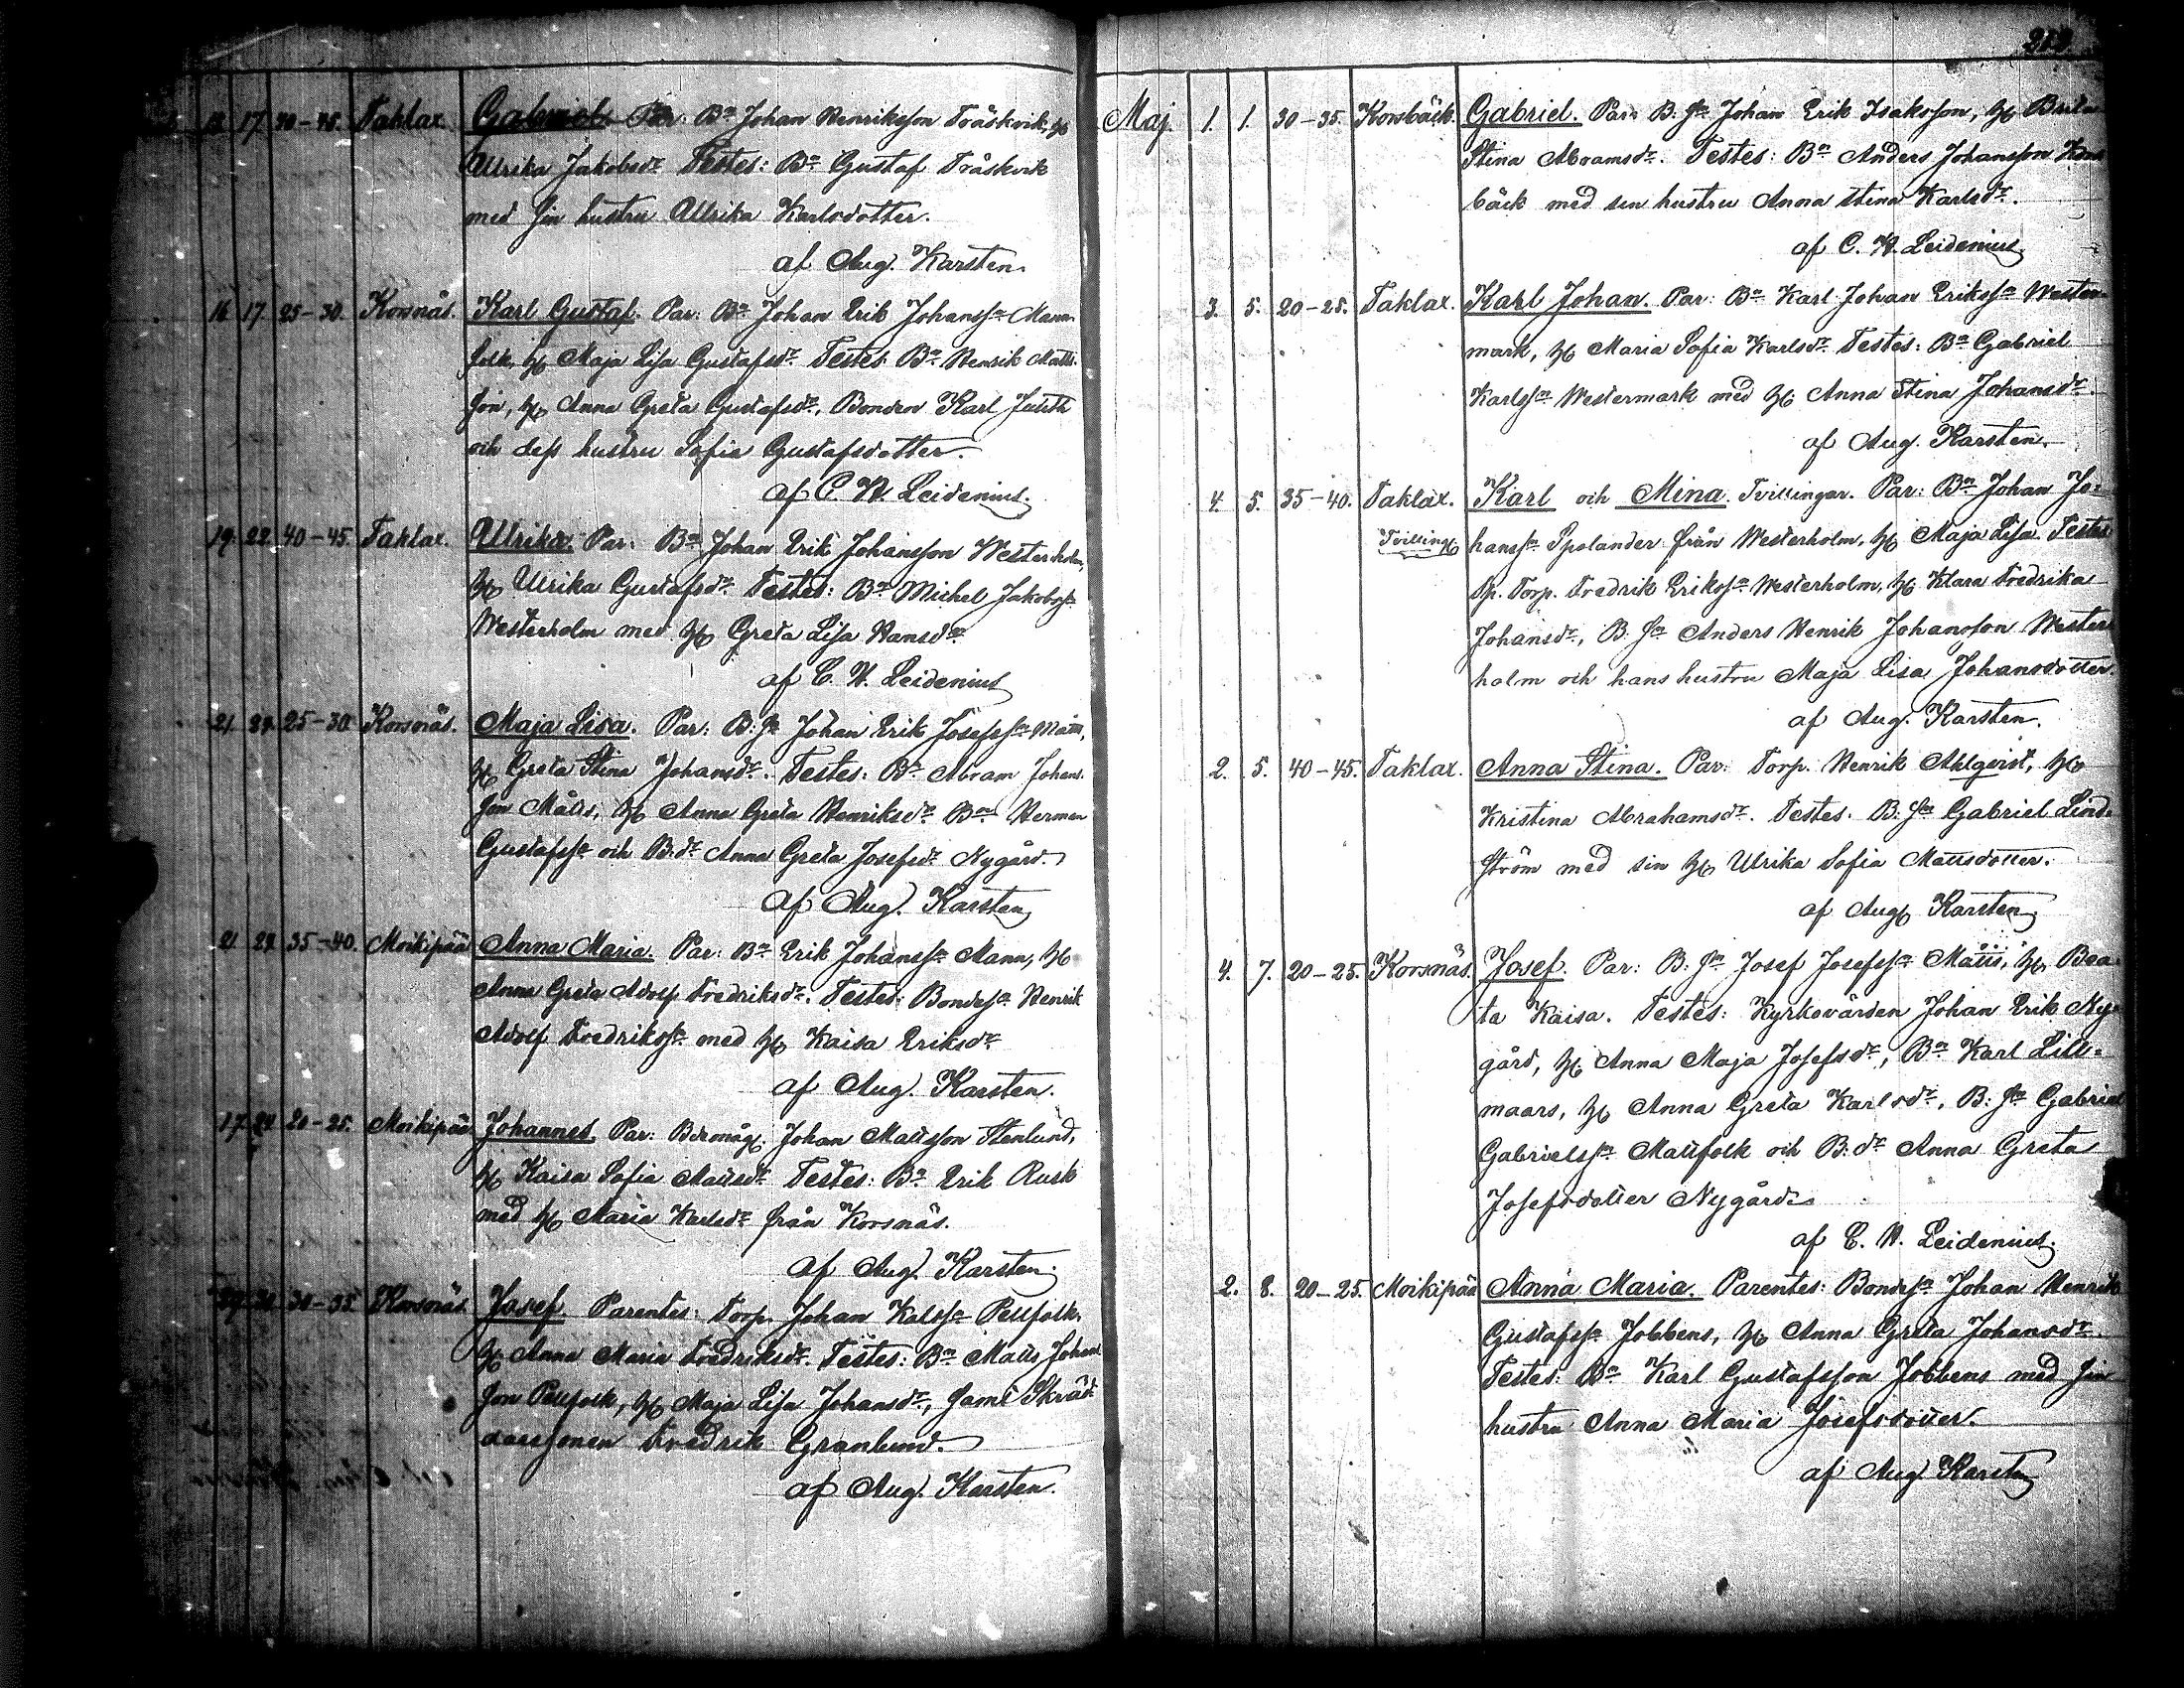 17. 40-45. Taklax. Gabriel. Par: Bn Johan Henriksson Träskvik, H
Ullrika Jakobsdr Testes: Bn Gustaf Träskvik
med sin hustru Ullrika Karlsdotter.
af Aug. Karsten.
16 17. 25-30. Korsnäs. Karl Gustaf. Par: Bn Johan Erik Johanssn Mann-
folk, H Maja Lisa Gustafsdr Testes Bn Henrik Matts-
son, H Anna Greta Gustafsdr, Bonden Karl Juuth
och dess hustru Sofia Gustafsdotter.
af C. H. Leidenius.
19. 22. 40-45. Taklax. Ullrika. Par: Bn Johan Erik Johansson Westerholm,
H Ulrika Gustafsdr Testes: Bn Michel Jakobssn
Westerholm med H Greta Lisa Hansdr
af C. H. Leidenius
21. 24. 25-30 Korsnäs. Maja Lisa. Par: B: sn Johan Erik Josefssn Måtts,
H Greta Stina Johansdr. Testes: Bn Abram Johans-
son Måtts, H Anna Greta Henriksdr Bn Herman
Gustafssn och B:dr Anna Greta Josefsdr Nygård.
af Aug. Karsten
21. 24. 35-40. Moikipää Anna Maria. Par: Bn Erik Johanssn Mann, H
Anna Greta Adolf Fredriksdr. Testes: Bondesn Henrik
Adolf Fredrikssn med H Kaisa Eriksdr
af Aug. Karsten.
17. 24. 20-25. Moikipää Johannes. Par: Bdemåg. Johan Mattsson Stenlund,
H Kaisa Sofia Mattsdr Testes: Bn Erik Rusk
med H Maria Karlsdr från Korsnäs.
af Aug. Karsten.
30-35. Korsnäs. Josef. Parentes: Torp. Johan Kalssn Pellfolk,
H Anna Maria Fredriksdr. Testes: Bn Matts Johans
son Pellfolk, H Maja Lisa Johansdr, samt Skräd-
daresonen Fredrik Granlund.
af Aug. Karsten.
Maj. 1. 1. 30-35. Korsbäck. Gabriel. Par: B: sn Johan Erik Isaksson, H Brita
Stina Abramsdr. Testes: Bn Anders Johansson Kors
bäck med sin hustru Anna Stina Karlsdr.
af C. H. Leidenius
3. 5. 20-25. Taklax. Karl Johan. Par: Bn Karl Johan Erikssn Wester-
mark, H Maria Sofia Karlsdr Testes: Bn Gabriel
Karlssn Westermark med H Anna Stina Johansdr.
af Aug. Karsten.
4. 5. 35-40. Taklax. Karl och Mina. Tvillingar. Par: Bn Johan Jo-
Tvilling hanssn Spolander från Westerholm, H Maja Lisa. Testes
Sp. Torp. Fredrik Erikssn Westerholm, H Klara Fredrika
Johansdr, B. sn Anders Henrik Johansson Wester
holm och hans hustru Maja Lisa Johansdotter.
af Aug. Karsten.
2. 5. 40-45. Taklax. Anna Stina. Par: Torp. Henrik Ahlqvist, H
Kristina Abrahamsdr. Testes. B: sn Gabriel Lind-
ström med sin H Ulrika Sofia Mattsdotter.
af Aug Karsten
4. 7. 20-25. Korsnäs. Josef. Par: B. sn Josef Josefssn Måtts, H Bea-
ta Kaisa. Testes: Kyrkovärden Johan Erik Ny-
gård, H Anna Maja Josefsdr, Bn Karl Lill-
maars, H Anna Greta Karlsdr, B: sn Gabriel
Gabrielssn Mattfolk och B:dr Anna Greta
Josefsdotter Nygård.
af C. H. Leidenius.
2. 8. 20-25. Moikipää Anna Maria. Parentes: Bondesn Johan Henrik
Gustafssn Jobbens, H Anna Greta Johansdr.
Testes: Bn Karl Gustafsson Jobbens med sin
hustru Anna Maria Josefsdotter.
af Aug Karsten